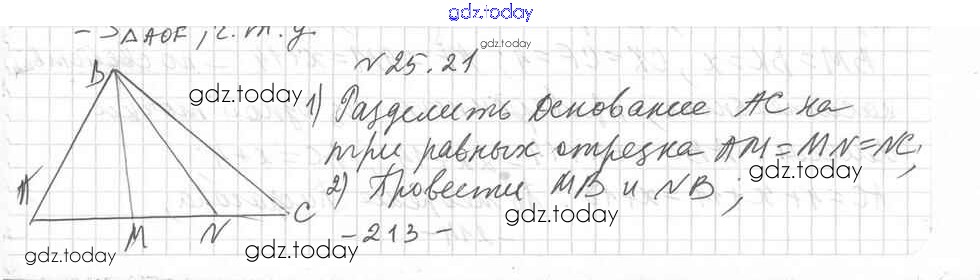 gdz.today
- S△AOF, ч.т.д.
gdz.today
№ 25.21
B
gdz.today
1) Разделить основание AC на
три равных отрезка AM = MN = NC;
gdz.today
2) Провести MB и NB;
A
M
N
C
gdz.today
- 213 -
gdz.today
gdz.today